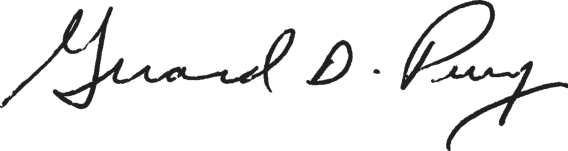 Gerard D. Perry